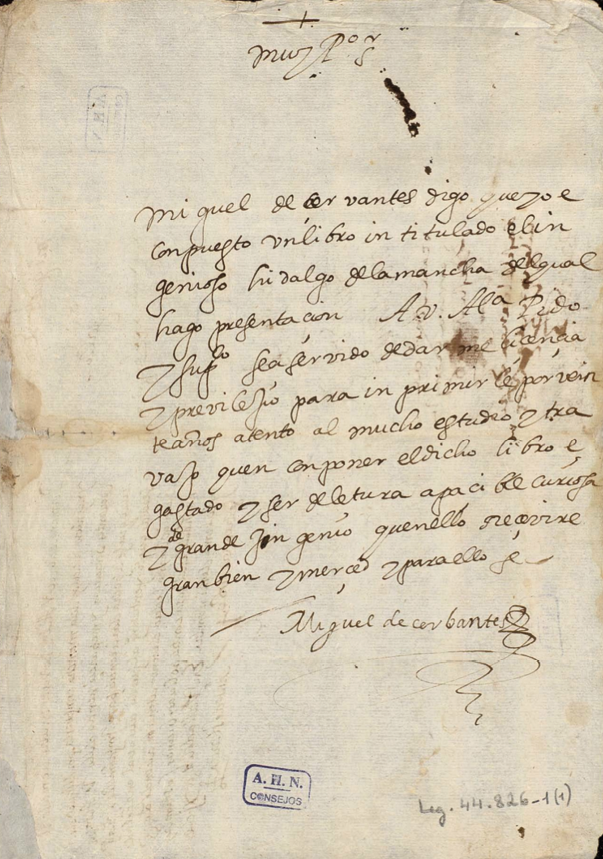 +
muy Pos
Miguel de cervantes digo q yo e
conpuesto un libro intitulado el in
genioso hidalgo de la mancha del qual
hago presentaçion A v. Alª Pido
y supco sea servido de darme liçençia
y previlejio para inprimirle por vein
te años atento al mucho estudio y tra
vajo quen conponer el dicho libro e
gastado y ser de letura apaçible curiosa
y de grande injenio quenello Recivire
gran bien y merced y para ello &
Miguel de cerbantes
A. H. N.
CONSEJOS
Leg. 44.826-1(1)